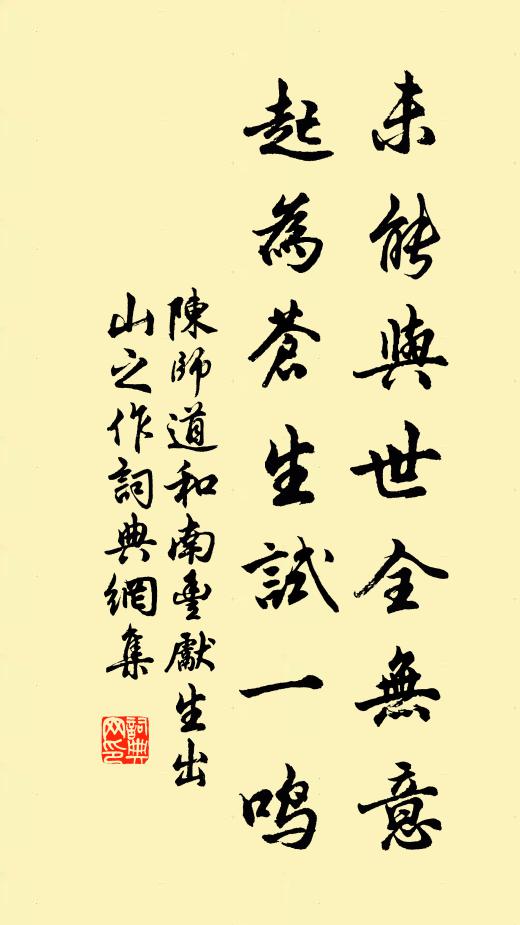 未能與世全無意
起為蒼生試一鳴
陳師道和南豐獻生出
山之作詞典網集
詞典
网印